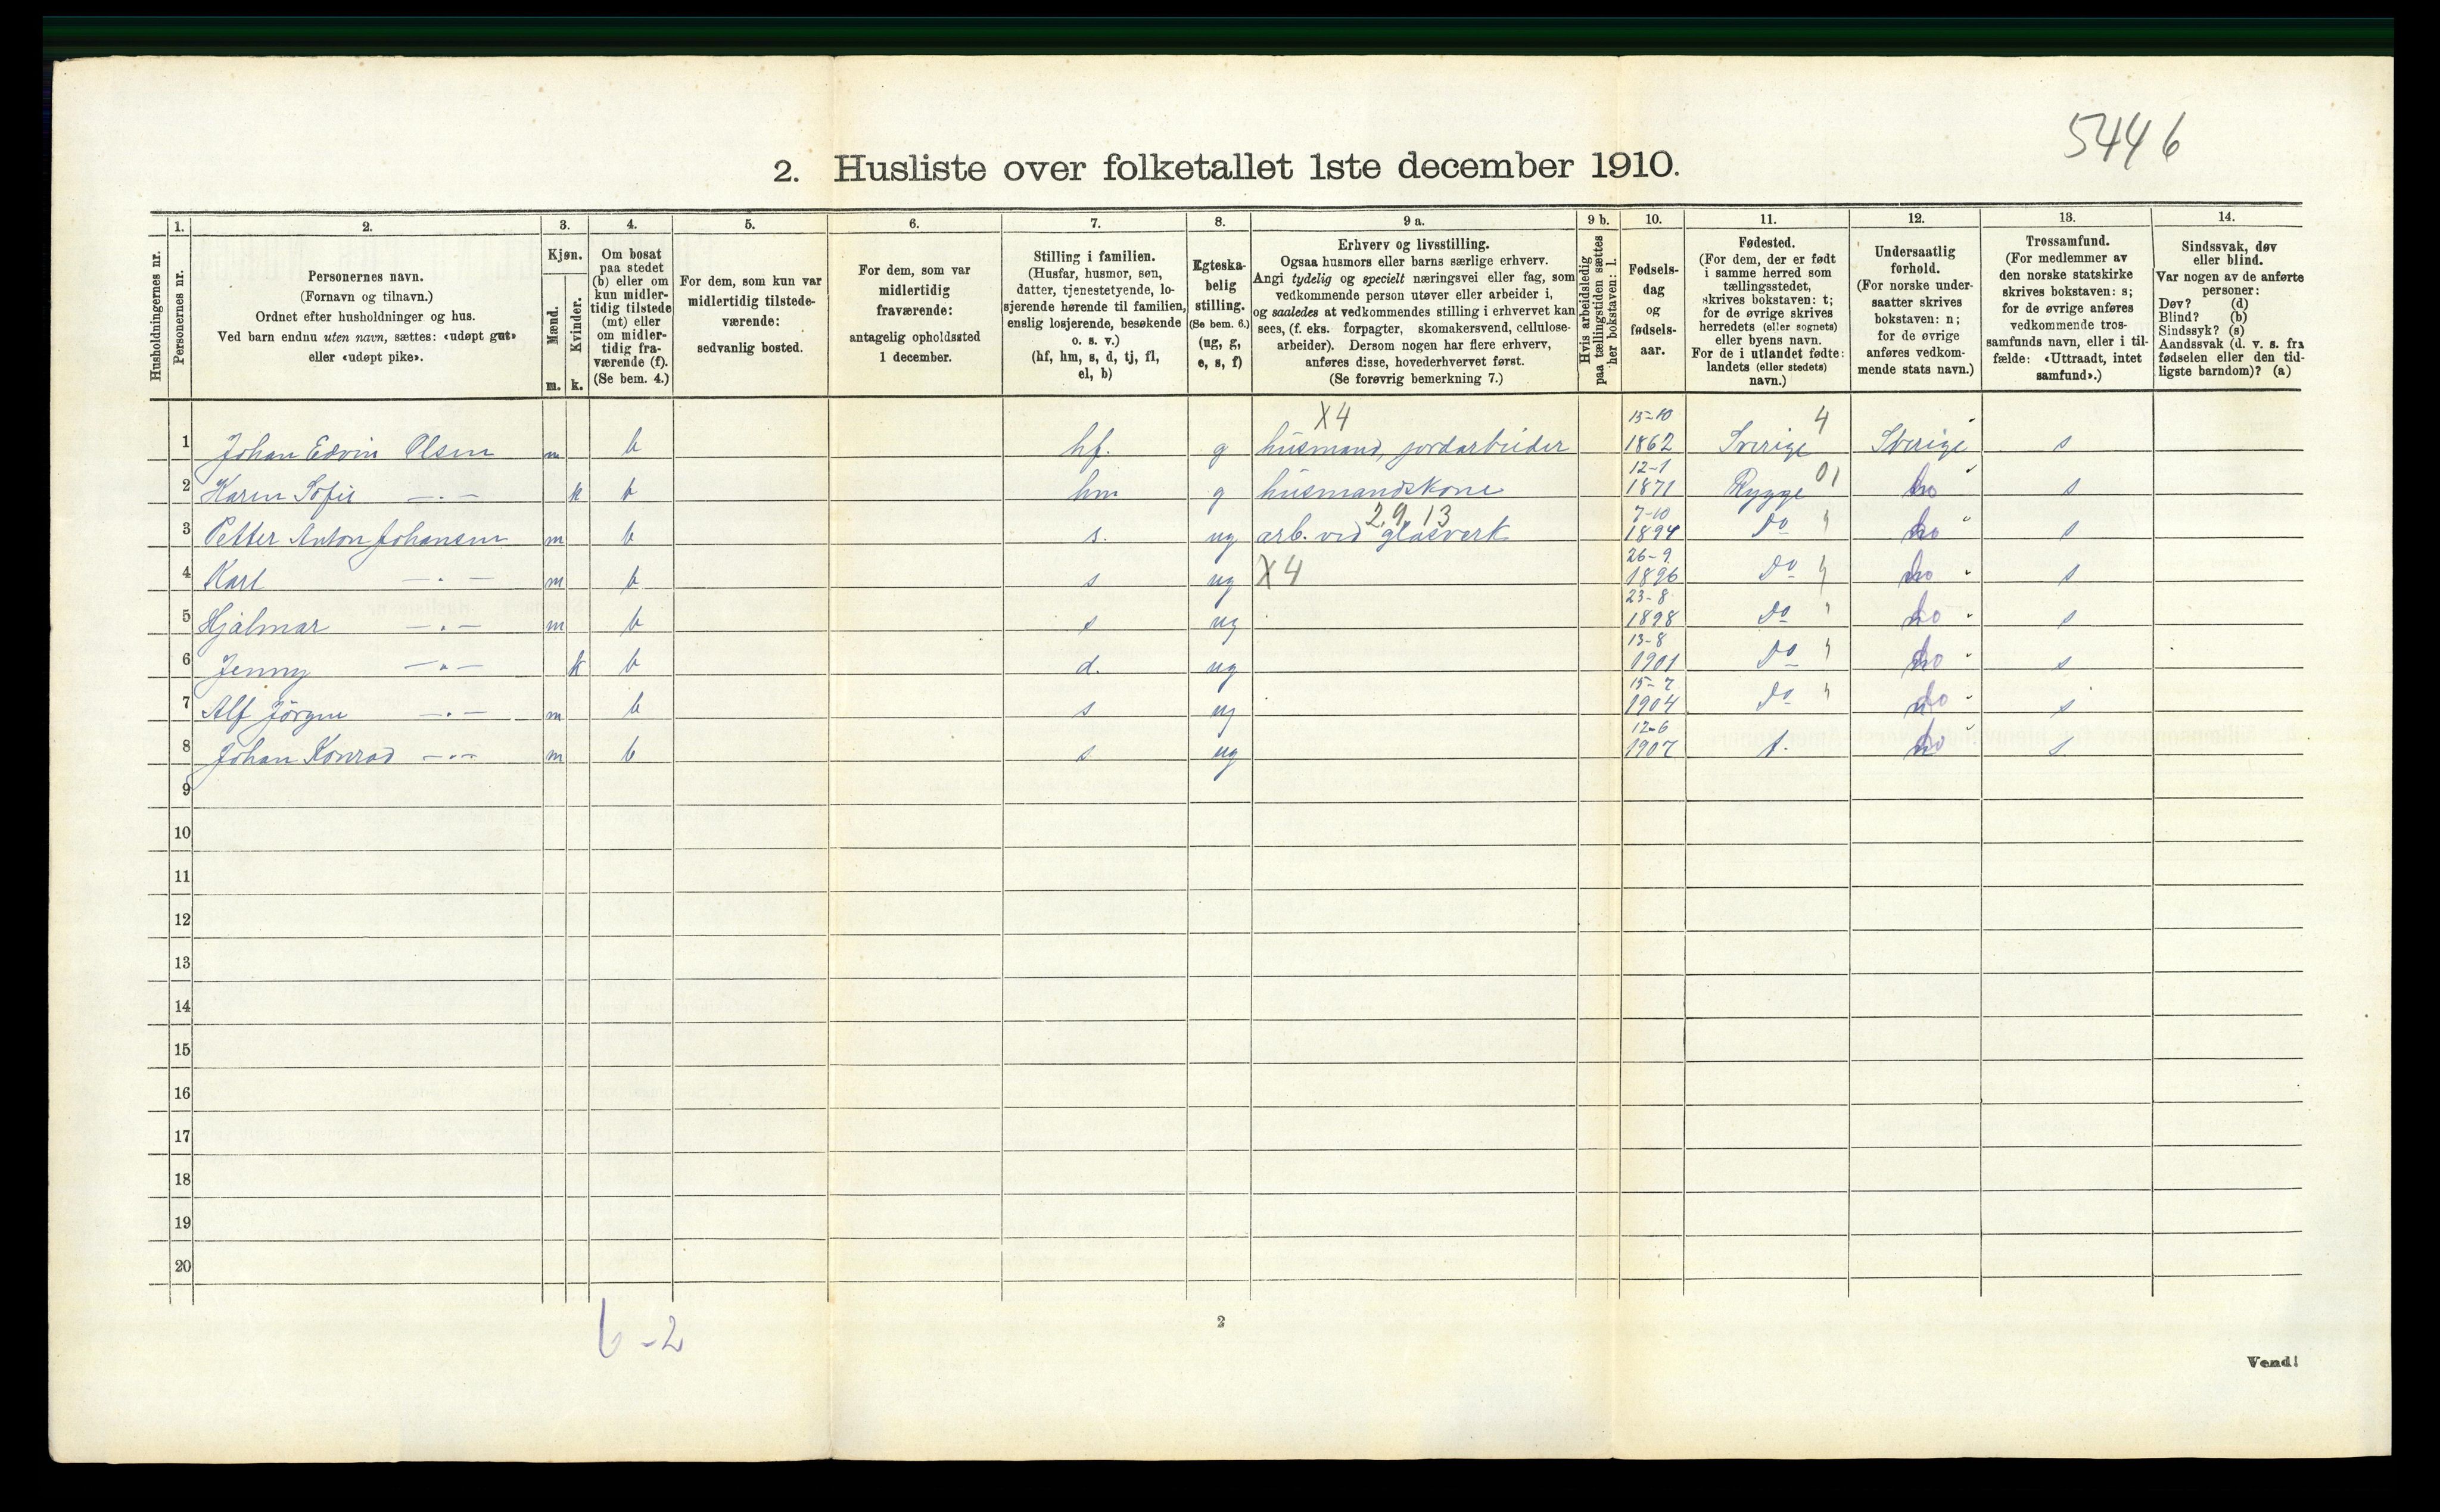 5446
2. Husliste over folketallet 1ste december 1910.
Husholdningernes nr.
1. Personernes nr.
2. Personernes navn. (Fornavn og tilnavn.) Ordnet efter husholdninger og hus. Ved barn endnu uten navn, sættes: «udøpt gut» eller «udøpt pike».
3. Kjøn. Mænd. m. Kvinder. k.
4. Om bosat paa stedet (b) eller om kun midlertidig tilstede (mt) eller om midlertidig fraværende (f). (Se bem. 4.)
5. For dem, som kun var midlertidig tilstedeværende: sedvanlig bosted.
6. For dem, som var midlertidig fraværende: antagelig opholdssted 1 december.
7. Stilling i familien. (Husfar, husmor, søn, datter, tjenestetyende, losjerende hørende til familien, enslig losjerende, besøkende o. s. v.) (hf, hm, s, d, tj, fl, el, b)
8. Egteskabelig stilling. (Se bem. 6.) (ug, g, e, s, f)
9 a. Erhverv og livsstilling. Ogsaa husmors eller barns særlige erhverv. Angi tydelig og specielt næringsvei eller fag, som vedkommende person utøver eller arbeider i, og saaledes at vedkommendes stilling i erhvervet kan sees, (f. eks. forpagter, skomakersvend, cellulosearbeider). Dersom nogen har flere erhverv, anføres disse, hovederhvervet først. (Se forøvrig bemerkning 7.)
9 b. Hvis arbeidsledig paa tællingstiden sættes her bokstaven: l.
10. Fødselsdag og fødselsaar.
11. Fødested. (For dem, der er født i samme herred som tællingsstedet, skrives bokstaven: t; for de øvrige skrives herredets (eller sognets) eller byens navn. For de i utlandet fødte: landets (eller stedets) navn.)
12. Undersaatlig forhold. (For norske undersaatter skrives bokstaven: n; for de øvrige anføres vedkommende stats navn.)
13. Trossamfund. (For medlemmer av den norske statskirke skrives bokstaven: s; for de øvrige anføres vedkommende trossamfunds navn, eller i tilfælde: «Uttraadt, intet samfund».)
14. Sindssvak, døv eller blind. Var nogen av de anførte personer: Døv? (d) Blind? (b) Sindssyk? (s) Aandssvak (d. v. s. fra fødselen eller den tidligste barndom)? (a)
1 Johan Edvin Olsen m b hf. g X4 husmand, jordarbeider 15-10 1862 Sverige 4 Sverige s
2 Karen Sofie —"— k b hm g husmandskone 12-1 1871 Rygge 01 do s
3 Petter Anton Johansen m b s. ug arb. ved glasverk 2,9,13 7-10 1894 do do s
4 Karl —"— m b s ug X4 26-9 1896 do do s
5 Hjalmar —"— m b s ug 23-8 1898 do do s
6 Jenny —"— k b d. ug 13-8 1901 do do s
7 Alf Jörgen —"— m b s ug 15-7 1904 do do s
8 Johan Konrad —"— m b s ug 12-6 1907 t. do s.
9
10
11
12
13
14
15
16
17
18
19
20
6-2
2
Vend!